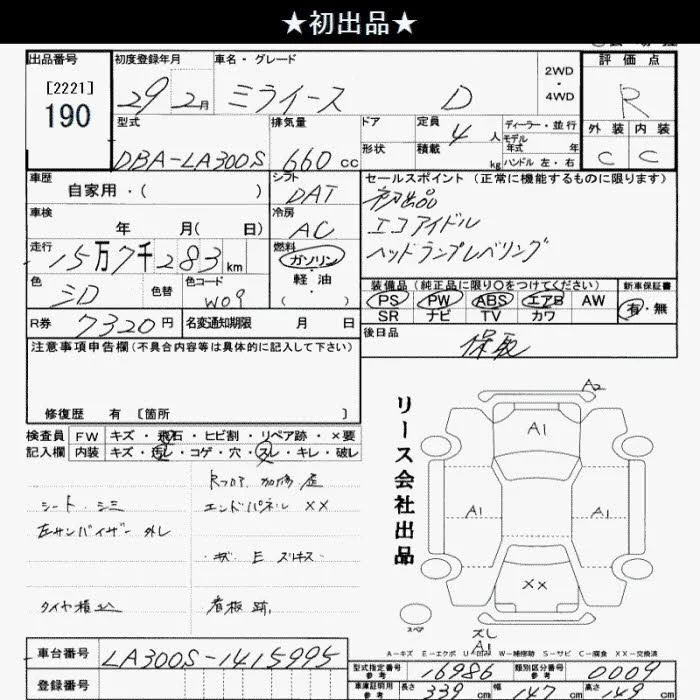 ★初出品★
出品番号
[2221]
190
初度登録年月
29 2月
車名・グレード
ミライース D
2WD
・
4WD
評価点
R
外装 内装
C C
型式
DBA-LA300S
排気量
660 cc
ドア
形状
定員
4 人
積載
kg
ディーラー・並行
モデル
年式 年
ハンドル 左・右
車歴
自家用・( )
シフト
DAT
セールスポイント (正常に機能するものに限ります)
初出品
エコアイドル
ヘッドランプレベリング
車検
年 月( 日)
冷房
AC
走行
15万7千283km
燃料
ガソリン
・
軽油
( )
色
シロ
色替
色コード
W09
装備品 (純正品に限り○をつけてください)
PS PW ABS エアB AW
SR ナビ TV カワ
新車保証書
有・無
R券
7320円
名変通知期限 月 日
後日品
保取
注意事項申告欄(不具合内容等は具体的に記入して下さい)
修復歴 有 〔箇所 〕
検査員
記入欄
FW キズ・飛石・ヒビ割・リペア跡・×要
内装 キズ・汚レ・コゲ・穴・スレ・キレ・破レ
Rフロア 加修 歪
シート シミ
エンドパネル XX
左サンバイザー 外し
キズ E スリキズ
タイヤ積込
看板跡
リース会社出品
A2
A1
A1
A1
XX
スペア
ズレ
A1
A-キズ E-エクボ U-凹み W-補修跡 S-サビ C-腐食 XX-交換済
車台番号
LA300S-1415995
登録番号
型式指定番号
参考
16986
類別区分番号
参考
0009
車庫証明用
参考
長さ 339 cm
幅 147 cm
高さ 149 cm